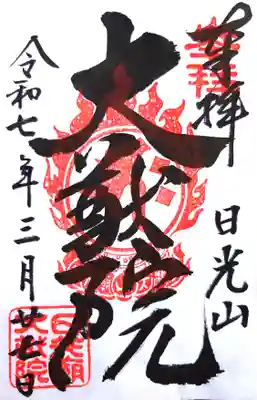 奉拝
日光山
大猷院
令和七年三月廿日
日光廟
大猷院